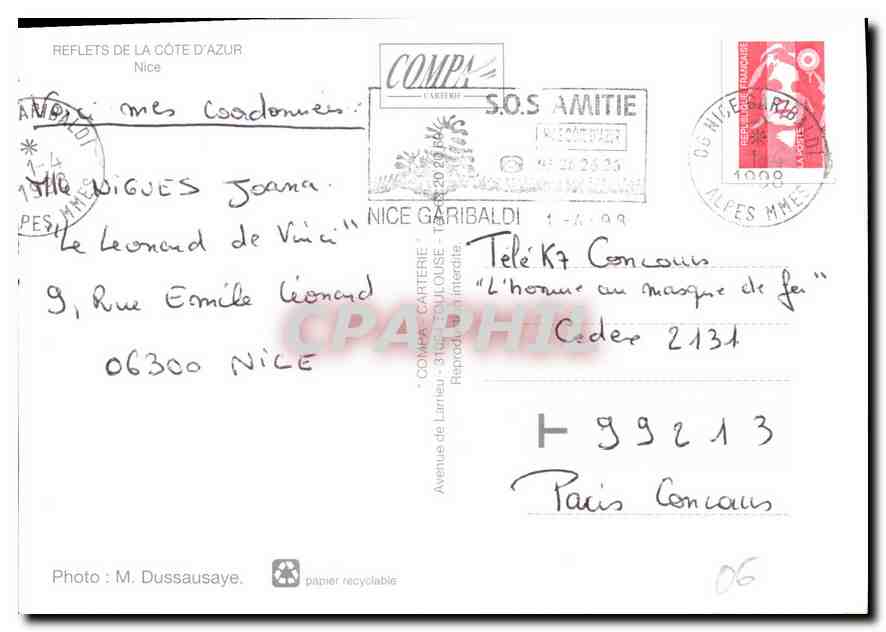 REFLETS DE LA CÔTE D'AZUR
Nice
COMPA
CARTERIE
S.O.S AMITIE
NICE CÔTE D'AZUR
NICE GARIBALDI 1-4-98
06 NICE GARIBALDI
1-4
1998
ALPES MMES
RÉPUBLIQUE FRANÇAISE
LA POSTE
ARIBALDI
1-4
PES MMES
Voici mes coordonnées:
Mlle NIGUES Joana.
"Le Léonard de Vinci"
9, Rue Emile Léonard
06300 NICE
" COMPA - CARTERIE "
Avenue de Larrieu - TOULOUSE
Reproduction interdite.
Télé K7 Concours
"L'homme au masque de fer"
Cedex 2131
99213
Paris Concours
CPAPHIL
Photo : M. Dussausaye.
papier recyclable
06